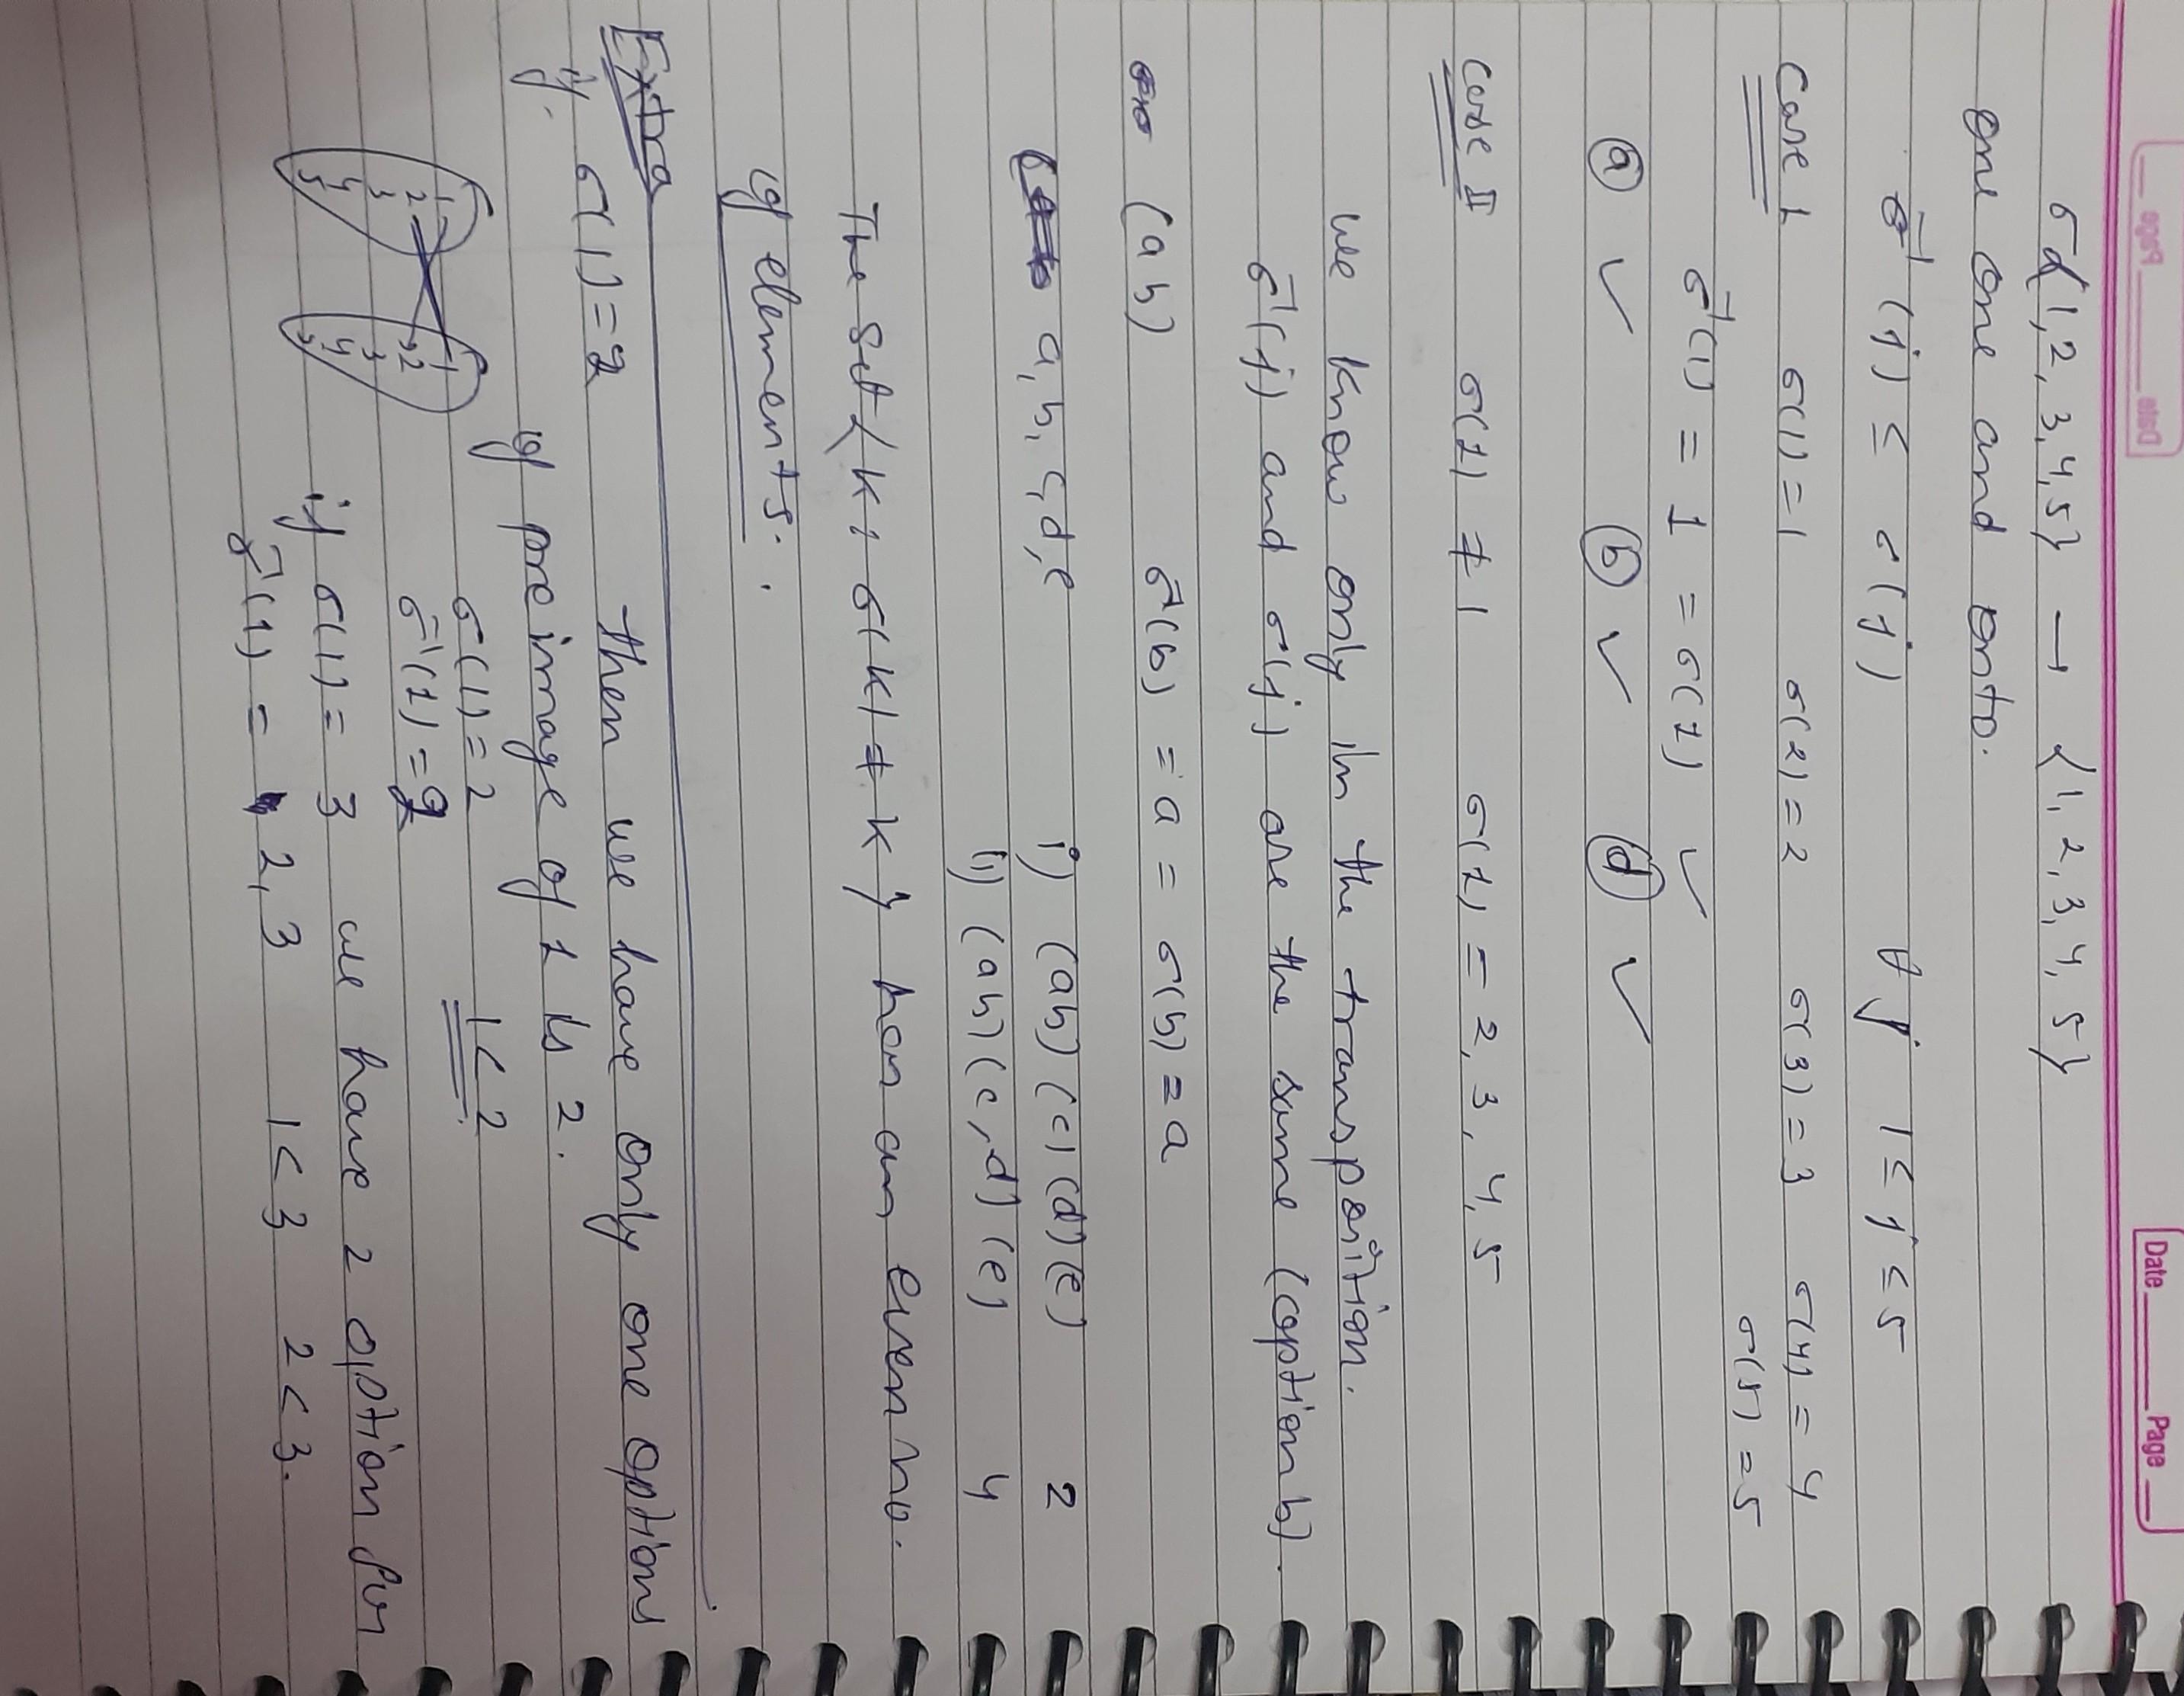 Date Page
σ{1,2,3,4,5} → {1,2,3,4,5}
one one and onto.
σ⁻¹(j) ≤ σ(j) ∀ j 1≤j≤5
Case 1 σ(1)=1 σ(2)=2 σ(3)=3 σ(4)=4
σ(5)=5
σ⁻¹(1) = 1 = σ(1) ✓
(a) ✓ (b) ✓ (d) ✓
Case II σ(1) ≠ 1 σ(1) = 2, 3, 4, 5
We know only in the transposition.
σ⁻¹(j) and σ(j) are the same (option b).
(ab) σ⁻¹(b) = a = σ(b) = a
a, b, c, d, e i) (ab)(c)(d)(e) 2
ii) (ab)(c,d)(e) 4
The set {k; σ(k) ≠ k} has an even no.
of elements.
Extra
if. σ(1)=2 then we have only one options
of preimage of 1 is 2.
1
2
3
4
5
1
2
3
4
5
σ(1)=2
σ⁻¹(1)=2 1<2
if σ(1)=3 we have 2 option for
σ⁻¹(1) = 2,3 1<3 2<3.